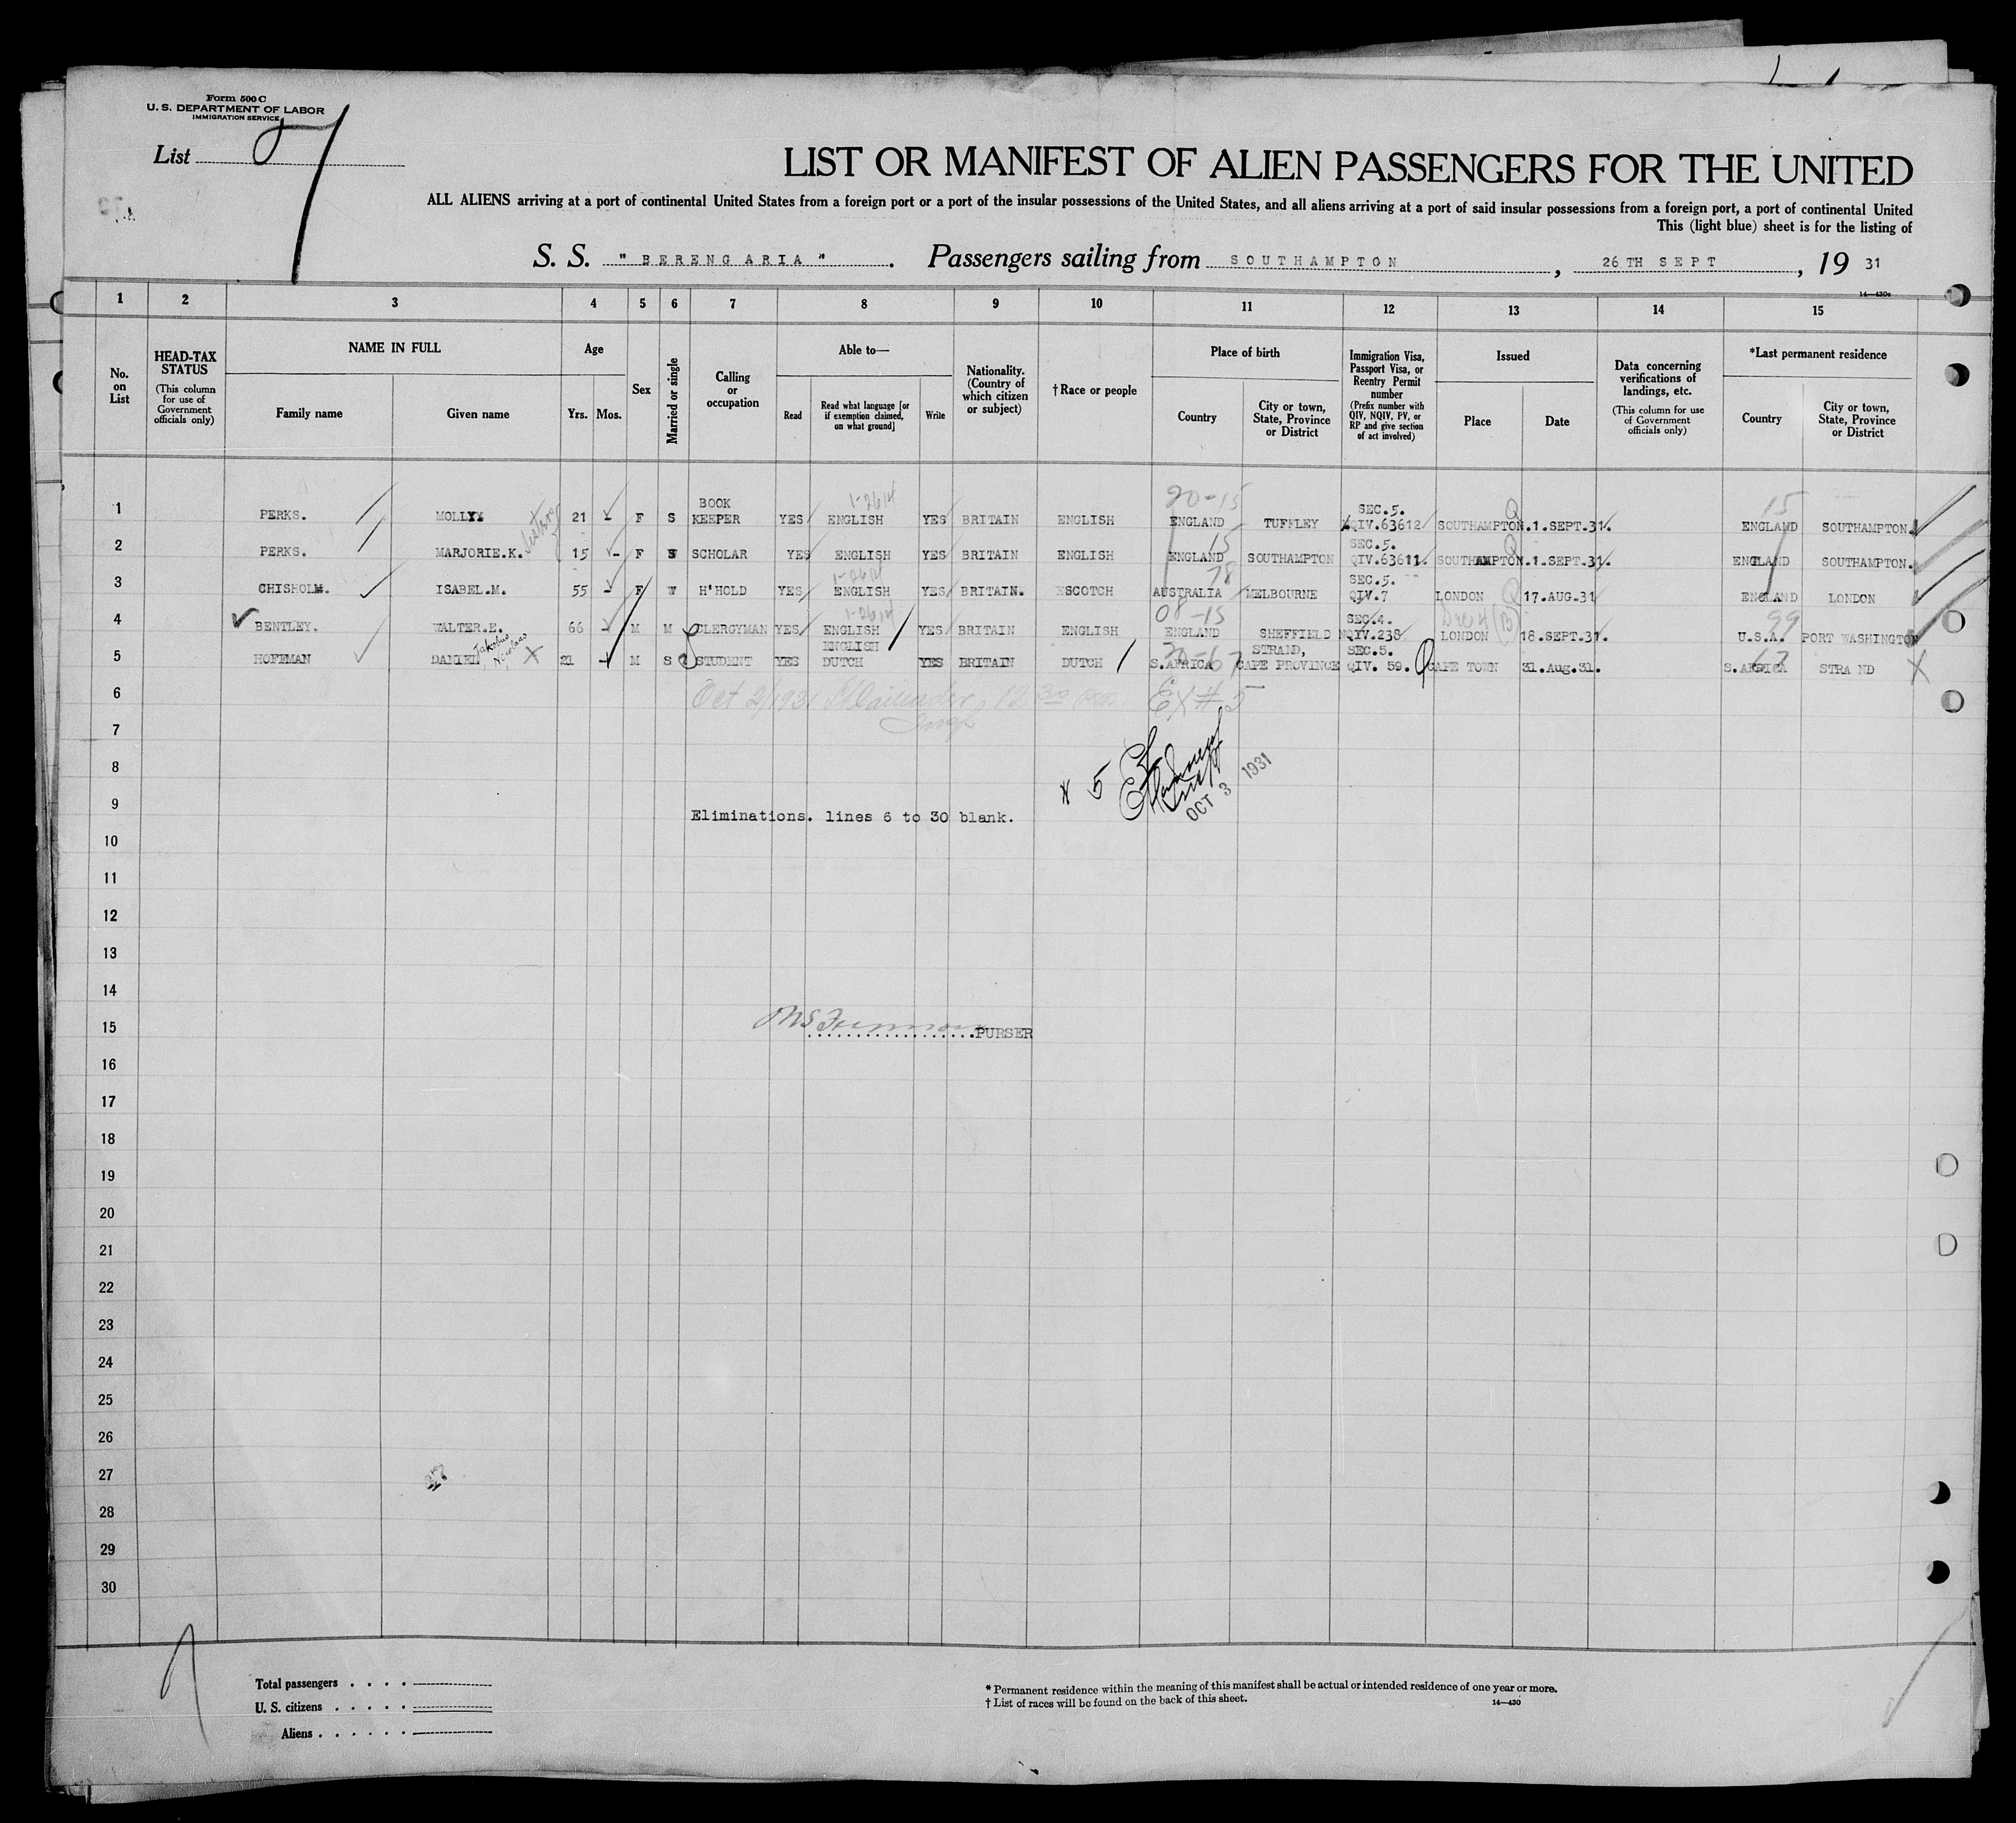 Form 500 C
U. S. DEPARTMENT OF LABOR
IMMIGRATION SERVICE
List 7
LIST OR MANIFEST OF ALIEN PASSENGERS FOR THE UNITED
ALL ALIENS arriving at a port of continental United States from a foreign port or a port of the insular possessions of the United States, and all aliens arriving at a port of said insular possessions from a foreign port, a port of continental United
This (light blue) sheet is for the listing of
S. S. "BERENGARIA". Passengers sailing from SOUTHAMPTON, 26TH SEPT, 19 31
14—430a
1 2 3 4 5 6 7 8 9 10 11 12 13 14 15
No. on List
HEAD-TAX STATUS (This column for use of Government officials only)
NAME IN FULL
Family name
Given name
Age
Yrs. Mos.
Sex
Married or single
Calling or occupation
Able to—
Read
Read what language [or if exemption claimed, on what ground]
Write
Nationality. (Country of which citizen or subject)
† Race or people
Place of birth
Country
City or town, State, Province or District
Immigration Visa, Passport Visa, or Reentry Permit number (Prefix number with QIV, NQIV, PV, or RP and give section of act involved)
Issued
Place
Date
Data concerning verifications of landings, etc. (This column for use of Government officials only)
*Last permanent residence
Country
City or town, State, Province or District
1-2614 20-15 15
BOOK SEC.5. Q
1 PERKS. MOLLY 21 - F S KEEPER YES ENGLISH YES BRITAIN ENGLISH ENGLAND TUFFLEY QIV.63612 SOUTHAMPTON.1.SEPT.31. ENGLAND SOUTHAMPTON.
15 SEC.5. Q
2 PERKS. MARJORIE.K. 15 - F S SCHOLAR YES ENGLISH YES BRITAIN ENGLISH ENGLAND SOUTHAMPTON QIV.63611. SOUTHAMPTON.1.SEPT.31. ENGLAND SOUTHAMPTON.
1-2614 78 SEC.5.
3 CHISHOLM. ISABEL.M. 55 - F W H'HOLD YES ENGLISH YES BRITAIN. SCOTCH AUSTRALIA MELBOURNE QIV.7 LONDON Q 17.AUG.31 ENGLAND LONDON
1-2614 08-15 SEC.4. (B) 99
4 BENTLEY. WALTER.E. 66 - M M CLERGYMAN YES ENGLISH YES BRITAIN ENGLISH ENGLAND SHEFFIELD NQIV.238 LONDON 18.SEPT.31. U.S.A. PORT WASHINGTON
Jakobus Nicolaas ENGLISH 20-67 STRAND, SEC.5.
5 HOFFMAN DANIEL X 21 - M S STUDENT YES DUTCH YES BRITAIN DUTCH S.AFRICA CAPE PROVINCE QIV. 59. CAPE TOWN 31.Aug.31. S.AFRICA STRAND X
6
Oct 2/1931 12 30 Ex # 5
Insp
7
8
# 5
OCT 3 1931
9
Eliminations. lines 6 to 30 blank.
10
11
12
13
14
15
PURSER
16
17
18
19
20
21
22
23
24
25
26
27
28
29
30
Total passengers
U. S. citizens
Aliens
* Permanent residence within the meaning of this manifest shall be actual or intended residence of one year or more.
† List of races will be found on the back of this sheet.
14—430